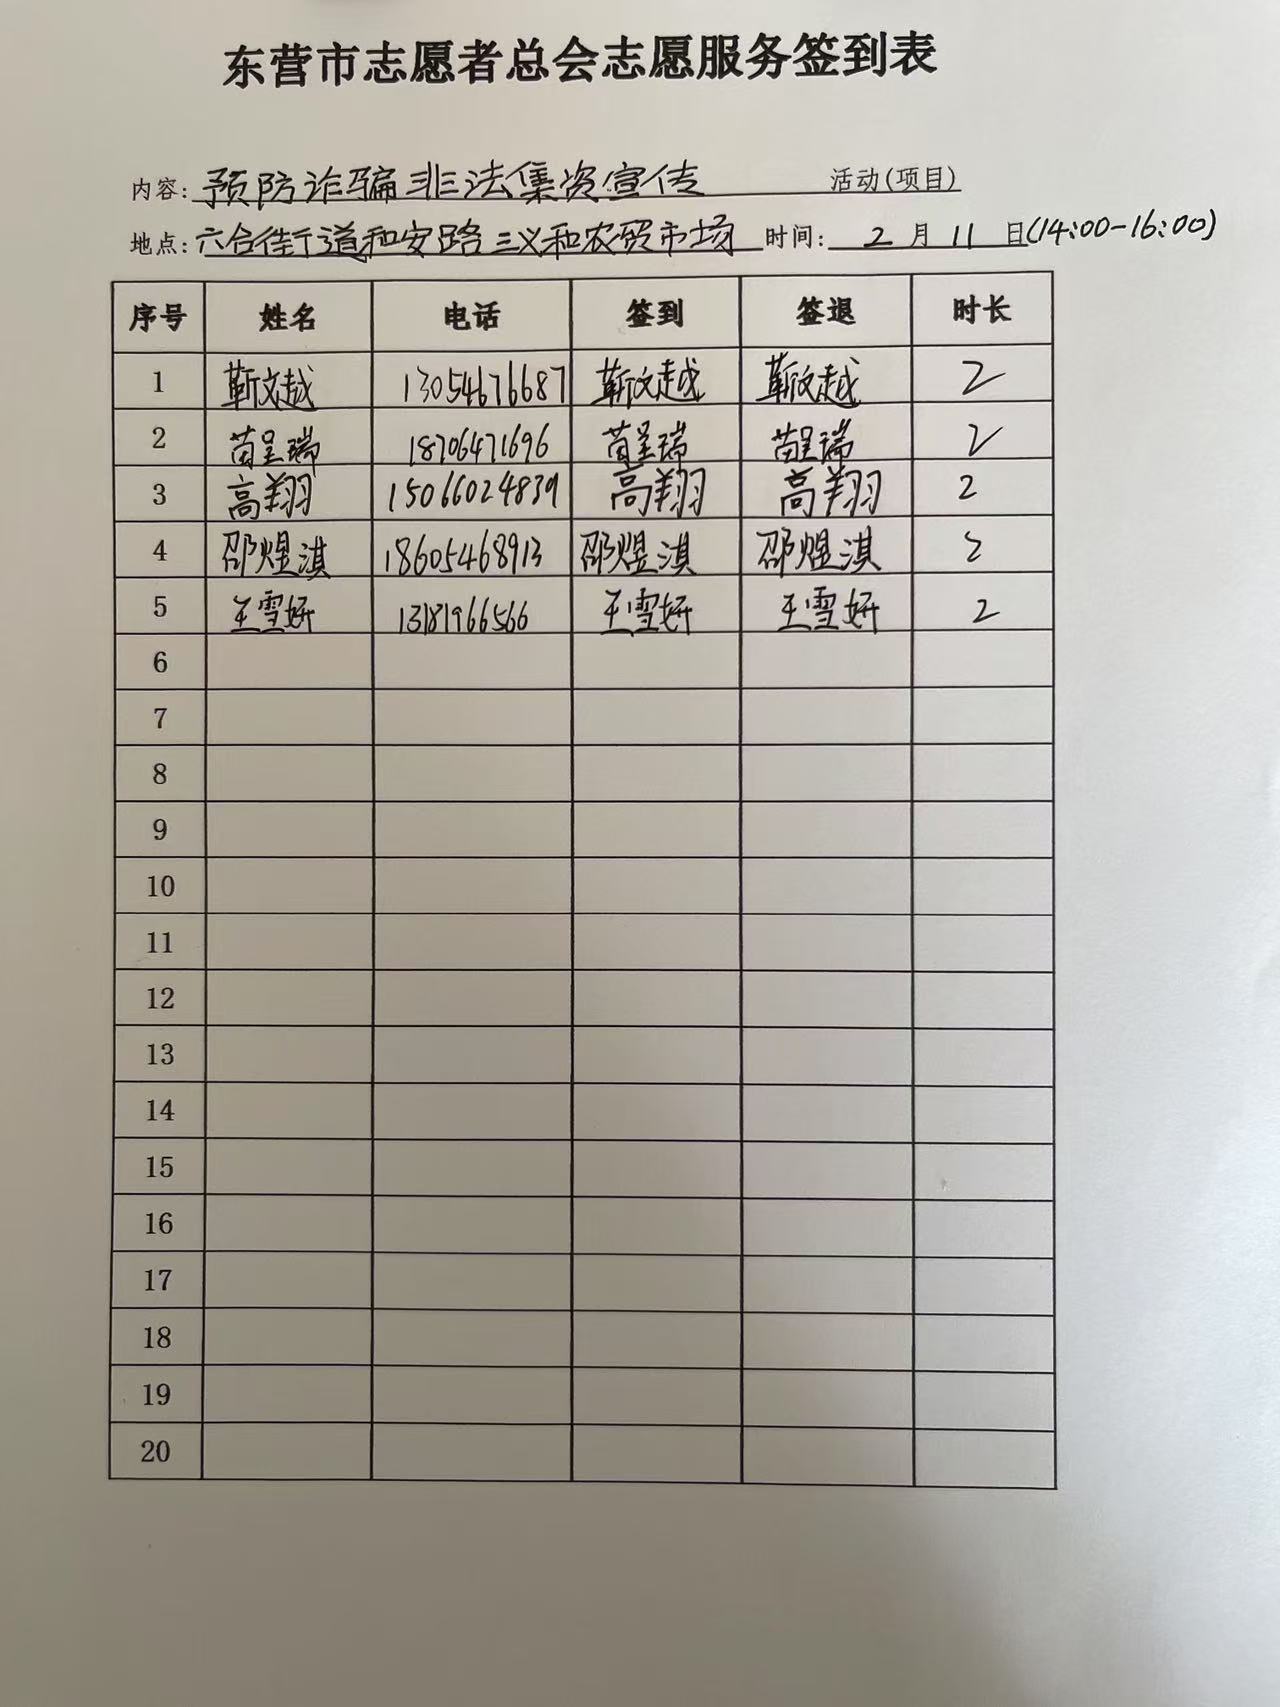 东营市志愿者总会志愿服务签到表
内容: 预防诈骗非法集资宣传 活动(项目)
地点: 六合街道和安路三义和农贸市场 时间: 2 月 11 日(14:00-16:00)
序号 姓名 电话 签到 签退 时长
1 靳文越 13054676687 靳文越 靳文越 2
2 苗呈瑞 18706471696 苗呈瑞 苗呈瑞 2
3 高翔 15066024839 高翔 高翔 2
4 邵煜淇 18605468913 邵煜淇 邵煜淇 2
5 王雪妍 13181966566 王雪妍 王雪妍 2
6
7
8
9
10
11
12
13
14
15
16
17
18
19
20